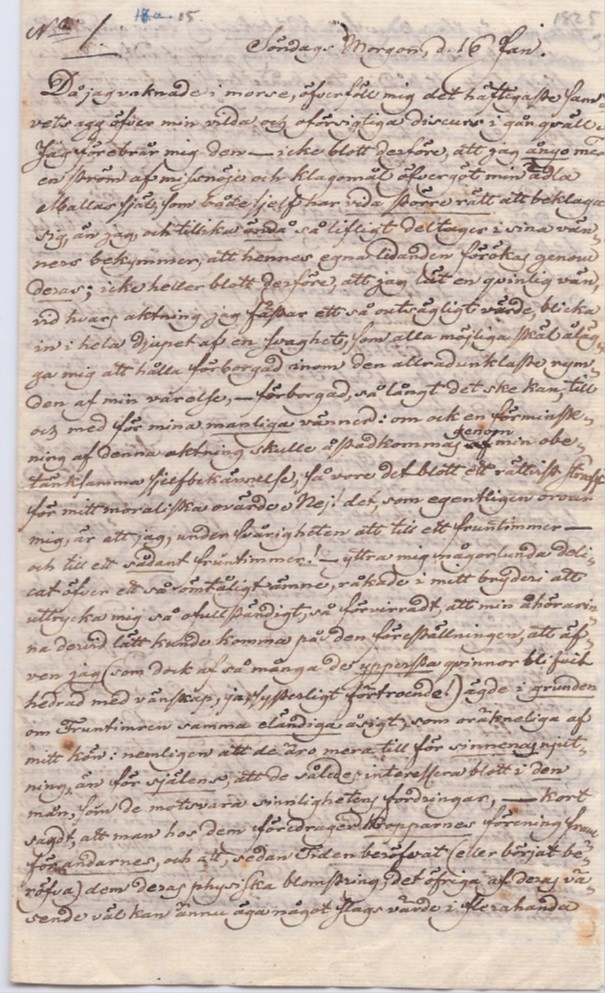 18a 15.
1825
No 1.
Söndags Morgon, d. 16 Jan.
Då jag vaknade i morse, öfverföll mig det häftigaste sam-
vets agg öfver min vilda och oförsigtiga discurs i går qväll.
Jag förebrår mig den — icke blott derföre, att jag ånyo med
en ström af missnöje och klagomål öfvergöt min ädla
Mallas själ, som både sjelf har vida större rätt att beklaga
sig, än jag, och tillika ändå så lifligt deltager i sina vän-
ners bekymmer, att hennes egna lidanden förökas genom
deras; icke heller blott derföre, att jag lät en qvinlig vän,
vid hvars aktning jag fäster ett så outsägligt värde, blicka
in i hela djupet af en svaghet, som alla möjliga skäl äläg-
ga mig att hålla förborgad inom den allradunklaste rym-
den af min varelse, — förborgad, så långt det ske kan, till
och med för mina manliga vänner: om ock en förminsk-
ning af denna aktning skulle åstadkommas genom min obe-
tänksamma sjelfbekännelse, så vore det blott ett rättvist straff
för mitt moraliska ovärde. Nej! det, som egentligen oroar
mig, är att jag, under svårigheten att till ett fruntimmer —
och till ett sådant fruntimmer! — yttra mig någorlunda deli-
cat öfver ett så ömtåligt ämne, råkade i mitt bryderi att
uttrycka mig så ofullständigt, så förvirradt, att min åhörarin-
na dervid lätt kunde komma på den föreställningen, att äf-
ven jag (som dock af så många de ypperska qvinnor blifvit
hedrad med vänskap, ja, systerligt förtroende!) ägde i grunden
om Fruntimren samma eländiga åsigt, som oräkneliga af
mitt kön: nemligen att de äro mera till för sinnenas njut-
ning, än för själens, att de således interessera blott i den
mån, som de motsvara sinnlighetens fordringar, — kort
sagdt, att man hos dem föredrager kropparnes förening fram-
för andarnes, och att, sedan Tiden beröfvat (eller börjat be-
röfva) dem deras physiska blomstring, det öfriga af deras vä-
sende väl kan ännu äga något slags värde i flerahanda